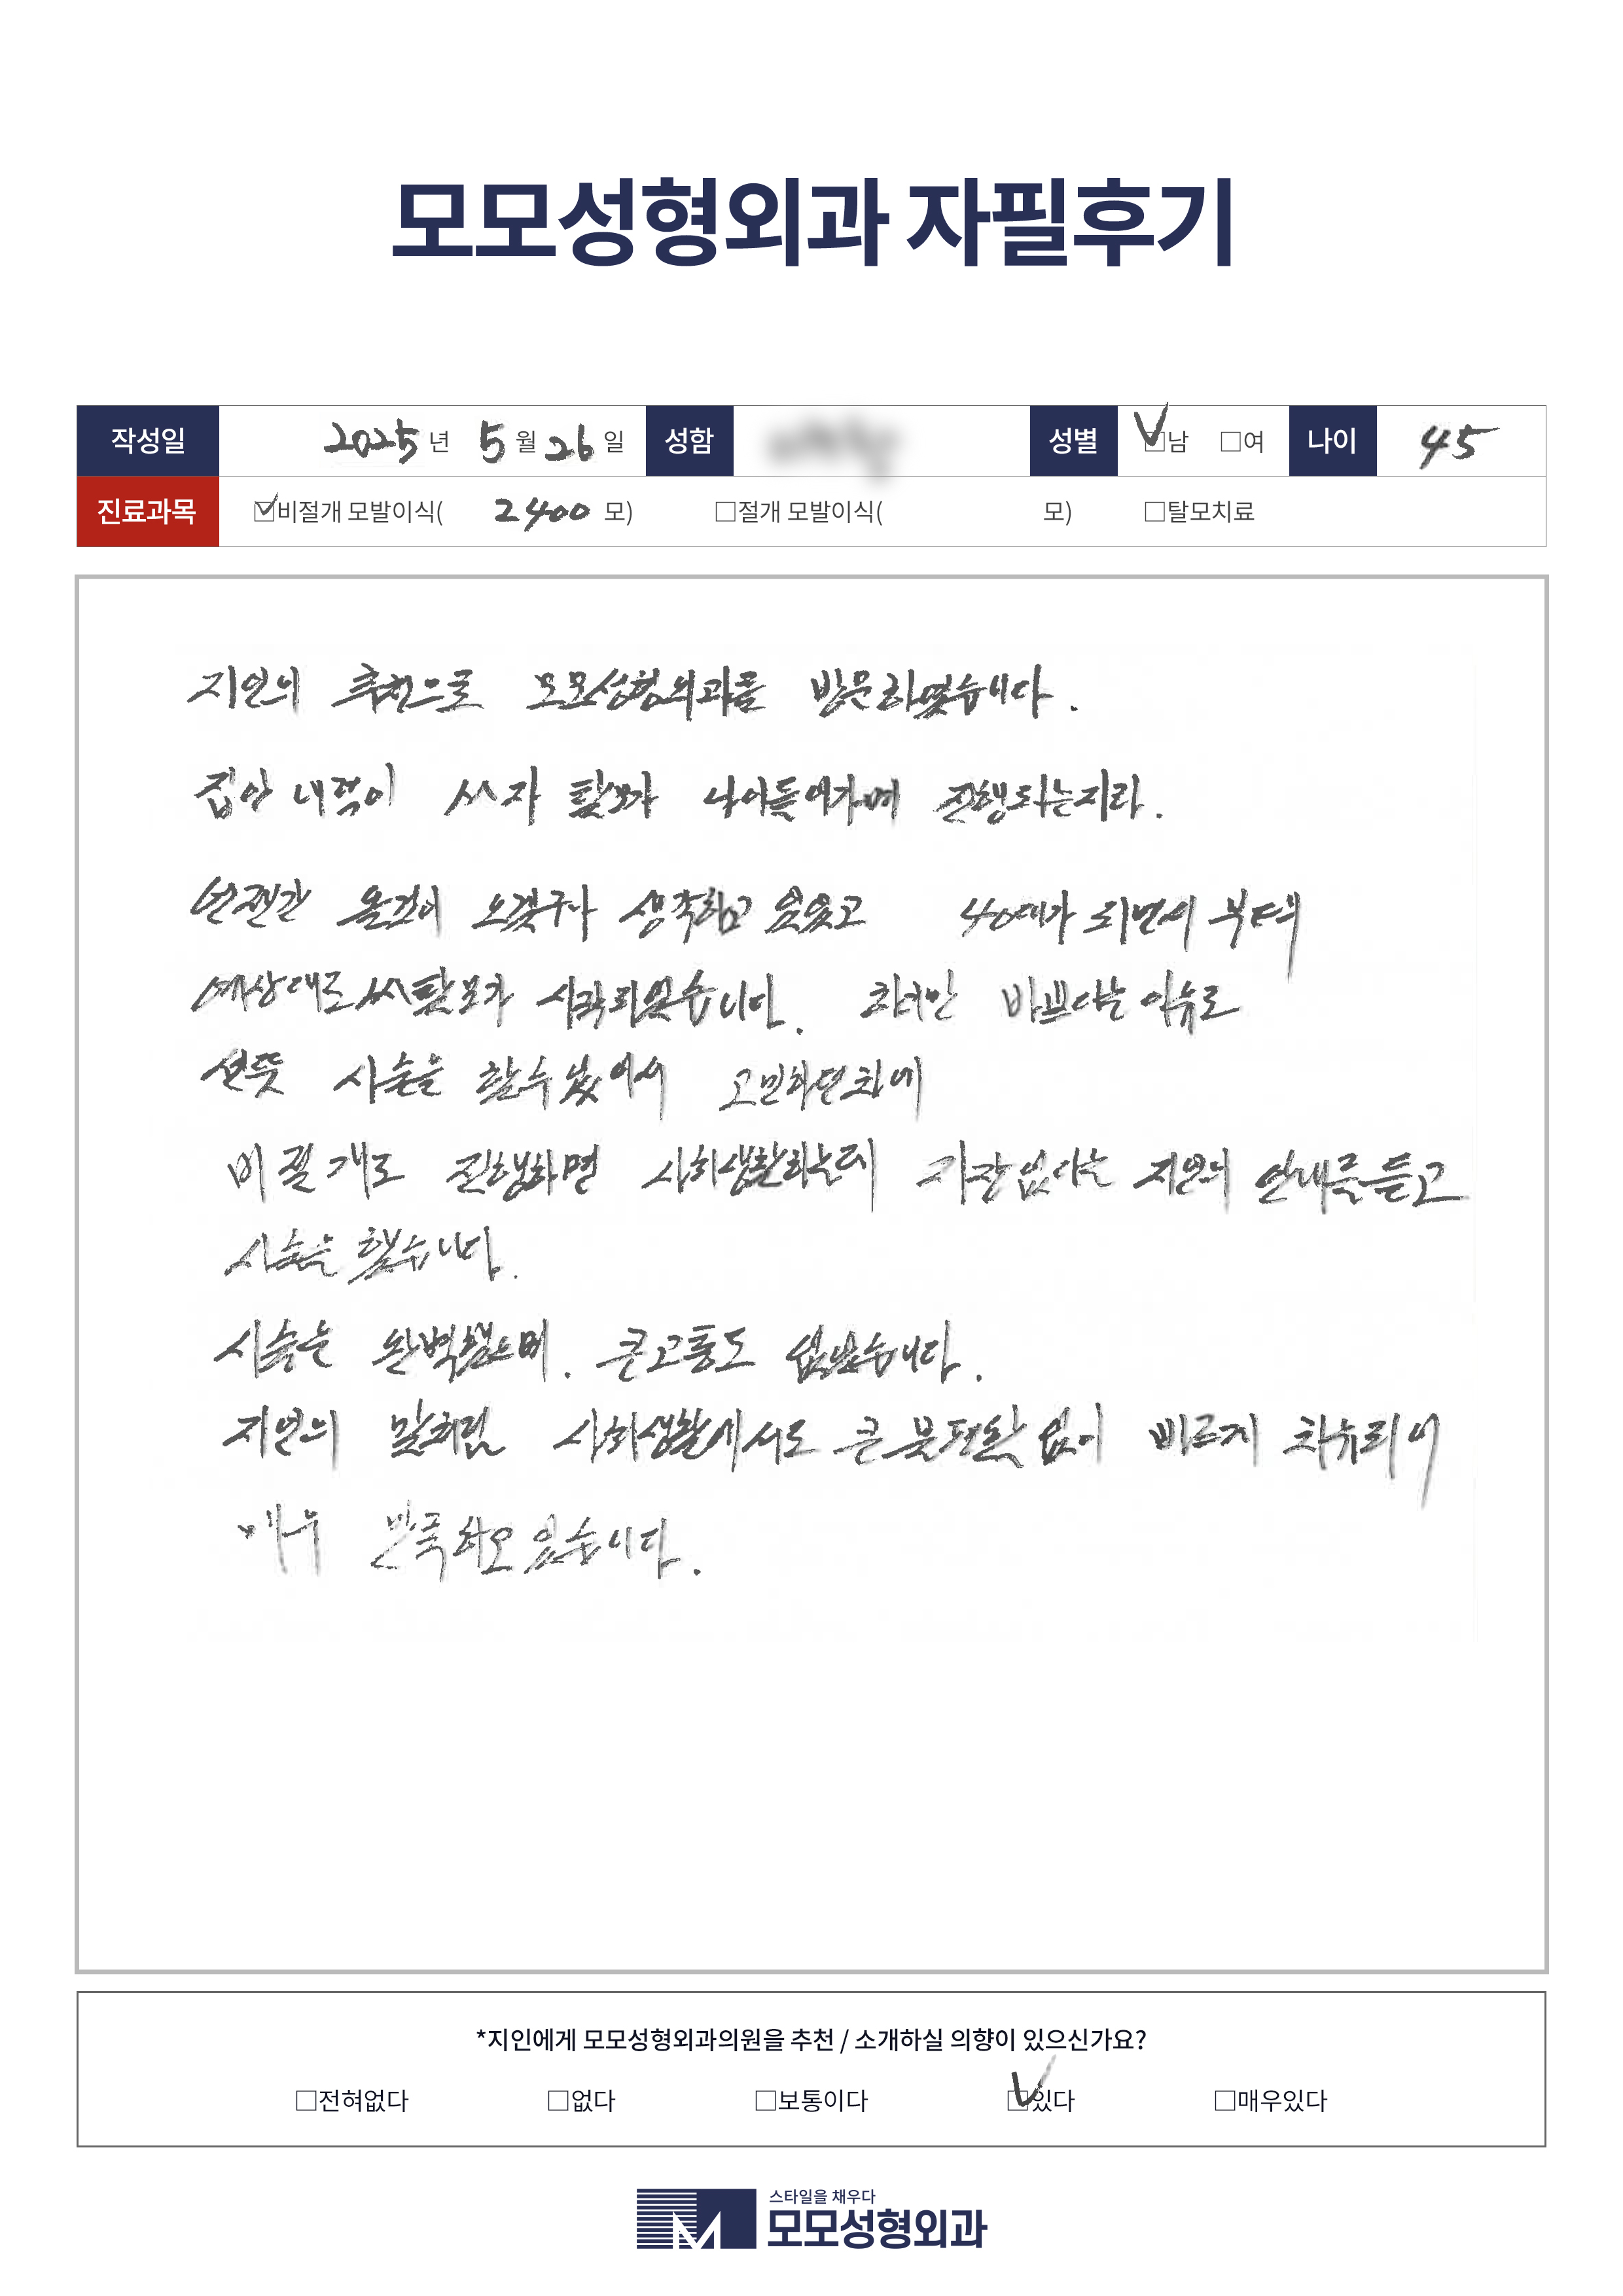 모모성형외과 자필후기
작성일 2025 년 5 월 26 일 성함 성별 ☑남 □여 나이 45
진료과목 ☑비절개 모발이식( 2400 모) □절개 모발이식( 모) □탈모치료
지인의 추천으로 모모성형외과를 방문하였습니다.
집안 내력이 M자 탈모가 나이들어가며 진행되는지라.
언젠간 올것이 오겠구나 생각하고 있었고 40대가 되면서 부터
예상대로 M탈모가 시작되었습니다. 하지만 바쁘다는 이유로
선뜻 시술을 할수 없어서 고민하던차에
비절개로 진행하면 사회생활하는데 지장없다는 지인의 안내를 듣고
시술을 했습니다.
시술은 완벽했으며. 큰고통도 없었습니다.
지인의 말처럼 사회생활에서도 큰 불편함 없이 빠르게 치유되어
매우 만족하고 있습니다.
*지인에게 모모성형외과의원을 추천 / 소개하실 의향이 있으신가요?
□전혀없다 □없다 □보통이다 ☑있다 □매우있다
스타일을 채우다
모모성형외과